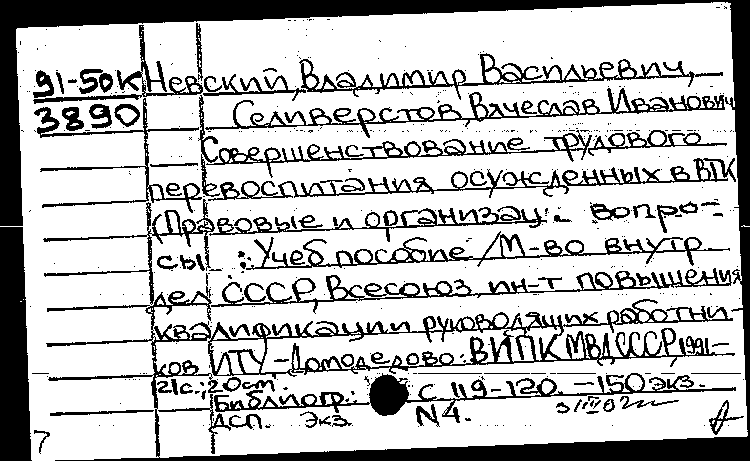 91-50К Невский, Владимир Васильевич,
3890 Селиверстов, Вячеслав Иванович
Совершенствование трудового
перевоспитания осужденных в ВТК
(Правовые и организац. вопро-
сы) : Учеб. пособие / М-во внутр.
дел СССР, Всесоюз. ин-т повышения
квалификации руководящих работни-
ков ИТУ - Домодедово: ВИПК МВД СССР, 1991.-
121с.; 20см.
Библиогр.: с. 119-120. - 150 экз.
ДСП. Экз. N4.
7